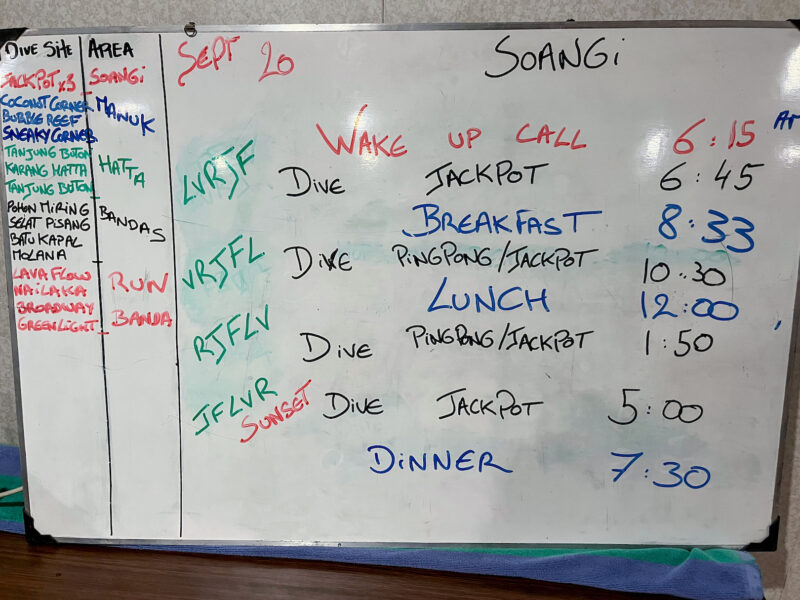 DIVE SITE AREA
JACKPOT x3 SOANGi
COCONUT CORNER MANUK
BUBBLE REEF
SNEAKY CORNER
TANJUNG BUTON HATTA
KARANG HATTA
TANJUNG BUTON
POHON MIRING BANDAS
SELAT PISANG
BATU KAPAL
MOLANA
LAVA FLOW RUN
NAILAKA
BROADWAY BANDA
GREENLIGHT
SEPT 20 SOANGi
WAKE UP CALL 6:15
LVRJF DIVE JACKPOT 6:45
BREAKFAST 8:33
VRJFL DIVE PINGPONG/JACKPOT 10:30
LUNCH 12:00
RJFLV DIVE PINGPONG/JACKPOT 1:50
JFLVR SUNSET DIVE JACKPOT 5:00
DINNER 7:30